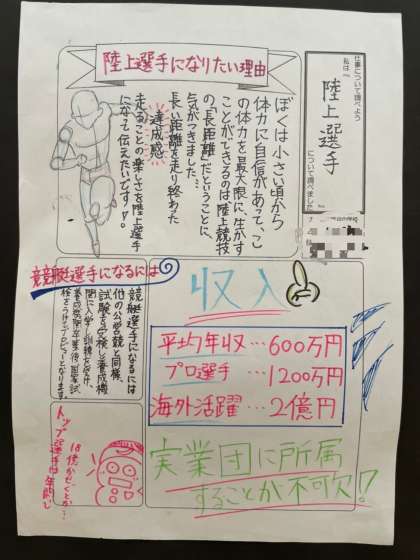 仕事について調べよう
私は『
陸上選手
』について調べました
陸上選手になりたい理由
ぼくは小さい頃から
体力に自信があって、こ
の体力を最大限に生かす
ことができるのは陸上競技
の「長距離」だということに、
気がつきました…
長い距離を走り終わった
達成感
走ることの楽しさを陸上選手
になって伝えたいです!!。
競艇選手になるには
競艇選手になるには
他の公営競と同様、
試験を受検し養成機
関に入学し訓練を受け、
養成機関卒業後、国家試
検をうけてプロデビューとなります。
収入
平均年収…600万円
プロ選手…1200万円
海外活躍…2億円
トップ選手は年間し
18億かせぐとか…
実業団に所属
することが不可欠!